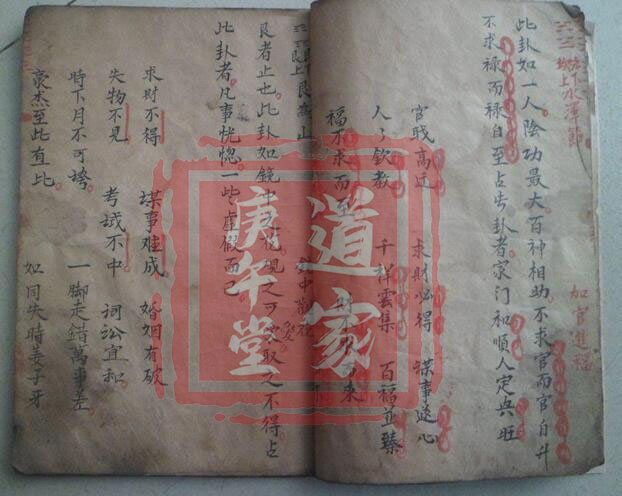 兑下坎上水澤節
加官進福
此卦如一人陰功最大百神相助不求官而官自升
不求禄而禄自至占出卦者家门和順人定兴旺
官职高迁 求财必得 謀事遂心
人人欽敬 千祥雲集 百福並臻
福不求而至
艮上艮為山
艮者止也此卦如鏡中之花观之可爱取之不得占
此卦者凡事恍惚一些虚假而已
求财不得 謀事难成 婚姻有破
失物不見 考城不中 词讼宜和
時下月不可誇 一脚走錯萬事差
豪杰至此有比 如同失時姜子牙
道家
庚午堂